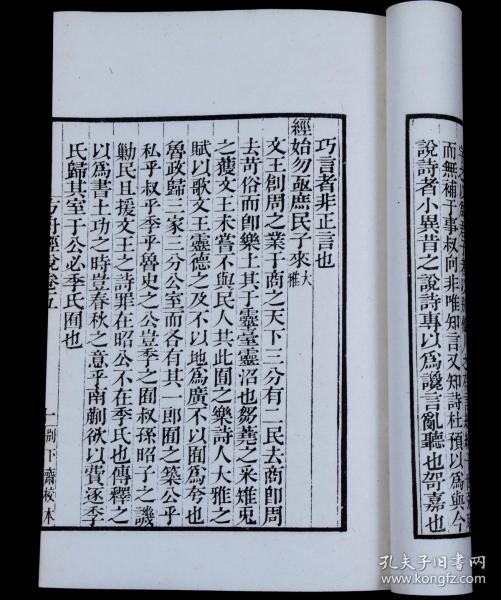 而無補于事叔向非唯知言又知詩杜預以爲與今
說詩者小異昔之說詩專以爲讒言亂聽也哿嘉也
巧言者非正言也
經始勿亟庶民子來大雅
文王創周之業于商之天下三分有二民去商卽周
去苛俗而卽樂土其于靈臺靈沼也芻蕘之采雉兎
之獲文王未嘗不與民人共此囿之樂詩人大雅之
賦以歌文王靈德之及不以地爲廣不以囿爲夸也
魯政歸三家三分公室而各有其一郎囿之築公乎
私乎叔乎季乎魯史之公豈季之囿叔孫昭子之譏
勦民且援文王之詩罪在昭公不在季氏也傳釋之
以爲書土功之時豈春秋之意乎南蒯欲以費逐季
氏歸其室于公必季氏囿也
詩經說卷五
下齋校本
孔夫子旧书网
www.kongfz.com